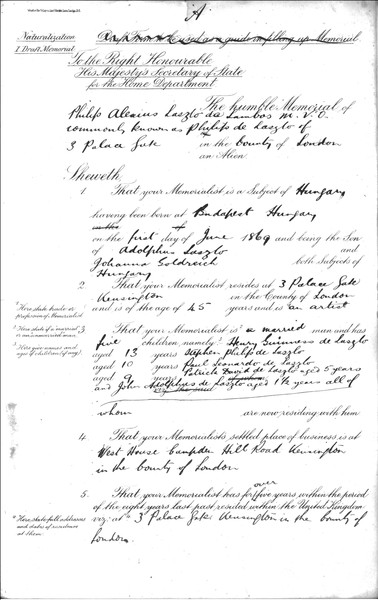 A
Naturalization
1 Draft Memorial
Draft Memorial to be used as a guide in filling up Memorial.
To the Right Honourable
His Majesty's Secretary of State
for the Home Department
The humble Memorial of
Philip Alexius Laszlo de Lombos M.V.O.
commonly known as Philip de Laszlo of
3 Palace Gate in the County of London
an Alien
Sheweth,
1. That your Memorialist is a Subject of Hungary
having been born at Budapest Hungary
on the first day of June 1869 and being the Son
of Adolphus Laszlo and
Johanna Goldreich both Subjects of
Hungary
2. That your Memorialist resides at 3 Palace Gate
Kensington in the County of London
and is of the age of 45 years and is an artist
* Here state trade or profession of Memorialist
3 That your Memorialist is a married man and has
* Here state if a married or unmarried man.
five children namely: Henry Guinness de Laszlo
* Here give names and ages of children (if any)
aged 13 years Stephen Philip de Laszlo
aged 10 years Paul Leonardo de Laszlo
aged 9 years Patrick David de Laszlo aged 5 years
and John Adolphus de Laszlo aged 1½ years all of
whom are now residing with him
4. That your Memorialist's settled place of business is at
West House Campden Hill Road Kensington
in the County of London
5. That your Memorialist has for over five years within the period
of the eight years last past resided within the United Kingdom
viz: at * 3 Palace Gate Kensington in the County of
London
* Here state full addresses and dates of residence at them.